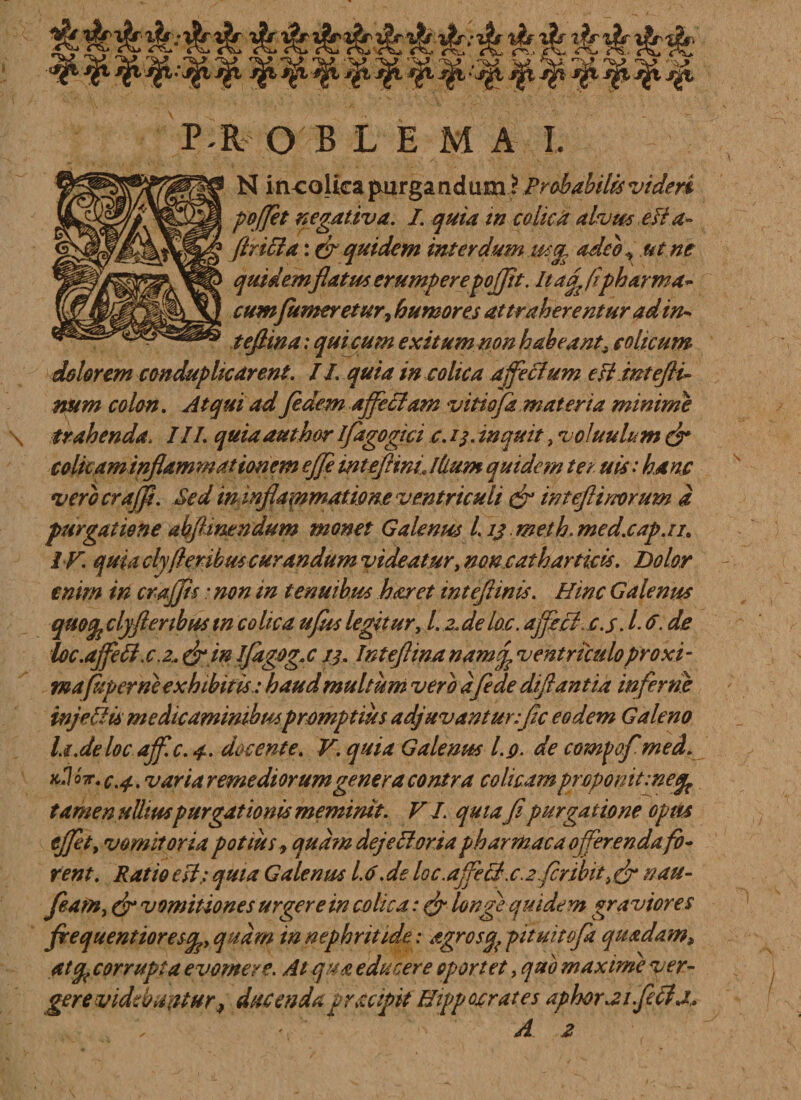 PROBLEMA I.
AN in colica purgandum? Probabilis videri
posset negativa. I. quia in colica alvus est a-
stricta: & quidem interdum usq; adeò, ut ne
quidem flatus erumpere possit. Itaq; si pharma-
cum sumeretur, humores attraherentur ad in-
testina: qui cum exitum non habeant, colicum
dolorem conduplicarent. II. quia in colica affectum est intesti-
num colon. Atqui ad sedem affectam vitiosa materia minimè
trahenda. III. quia author Isagogici c.13. inquit, voluulum &
colicam inflammationem esse intestini. Ilium quidem tenuis: hanc
verò crassi. Sed in inflammatione ventriculi & intestinorum à
purgatione abstinendum monet Galenus l. 13 meth. med.cap.11.
IV. quia clysteribus curandum videatur, non catharticis. Dolor
enim in crassis: non in tenuibus hæret intestinis. Hinc Galenus
quoq; clysteribus in colica usus legitur, l. 2. de loc. affect. c.5. l. 6. de
loc. affect. c.2. & in Isagog.c 13. Intestina namq; ventriculo proxi-
ma supernè exhibitis: haud multùm verò à sede distantia infernè
injectis medicaminibus promptiùs adjuvantur: sic eodem Galeno
l.1.de loc aff. c. 4. docente. V. quia Galenus l.9. de compos med.
κτ̃ τοπ. c.4. varia remediorum genera contra colicam proponit: neq;
tamen ullius purgationis meminit. VI. quia si purgatione opus
esset, vomitoria potiùs, quàm dejectoria pharmaca offerenda fo-
rent. Ratio est: quia Galenus l.6.de loc.affect.c.2 scribit, & nau-
seam, & vomitiones urgere in colica: & longè quidem graviores
frequentioresq;, quàm in nephritide: ægrosq; pituitosa quædam,
atq; corrupta evomere. At quæ educere oportet, quò maximè ver-
gere videbuntur, ducenda præcipit Hippocrates aphor.21.sect.1.
A 2